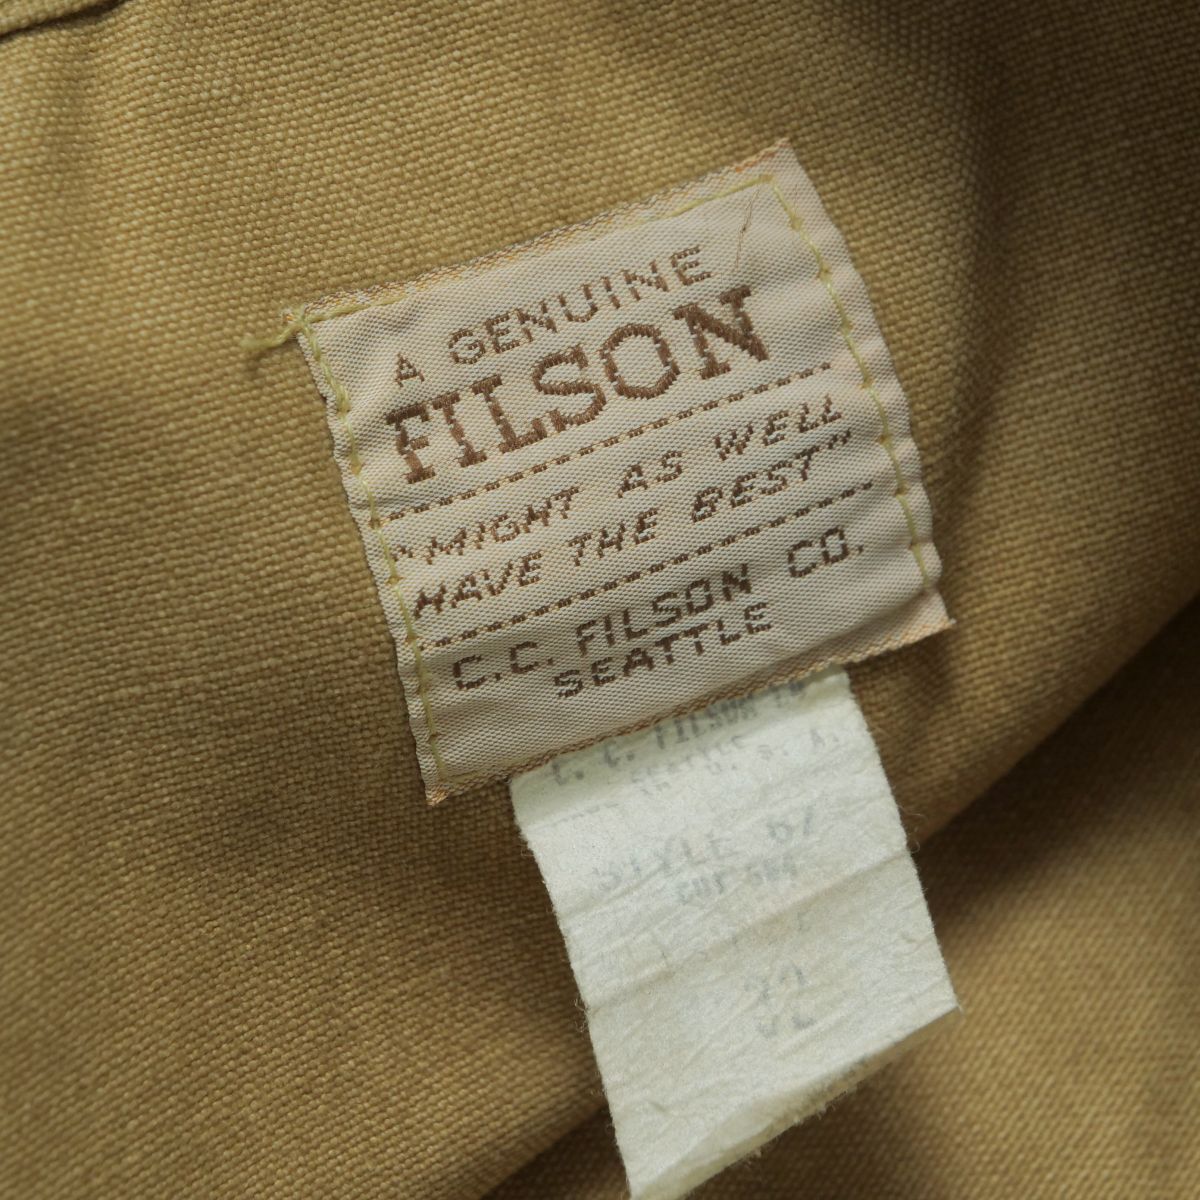 A GENUINE
FILSON
"MIGHT AS WELL
HAVE THE BEST"
C.C. FILSON CO.
SEATTLE
C. C. FILSON CO
STYLE
32